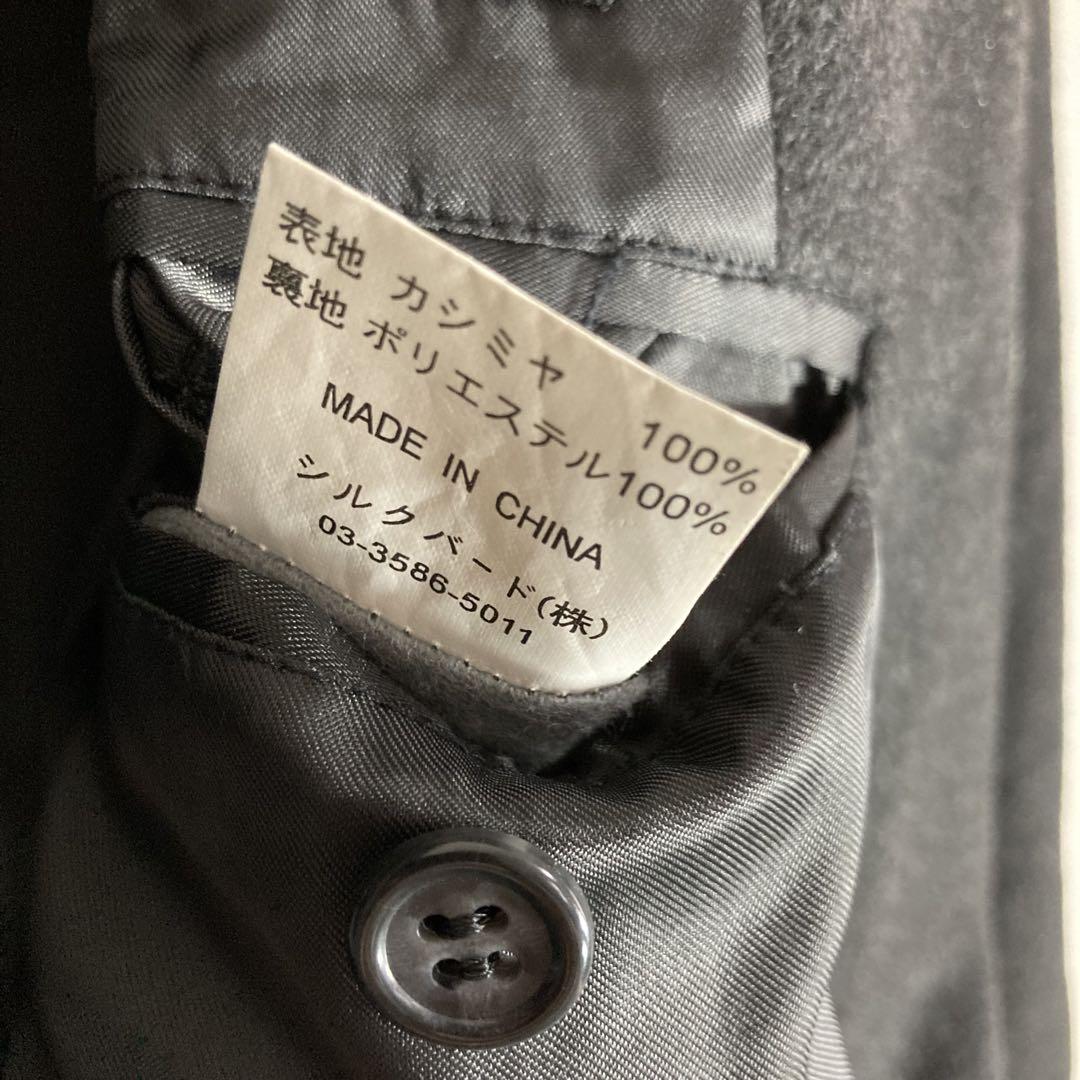 表地 カシミヤ 100%
裏地 ポリエステル100%
MADE IN CHINA
シルクバード(株)
03-3586-5011